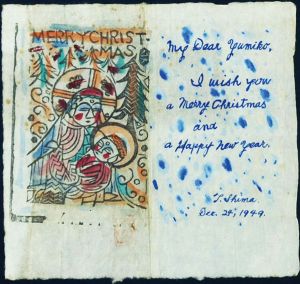 MERRY CHRIST-
MAS
My Dear Yumiko,
I wish you
a Merry Christmas
and
a Happy New Year.
T. Shima
Dec. 25, 1949.